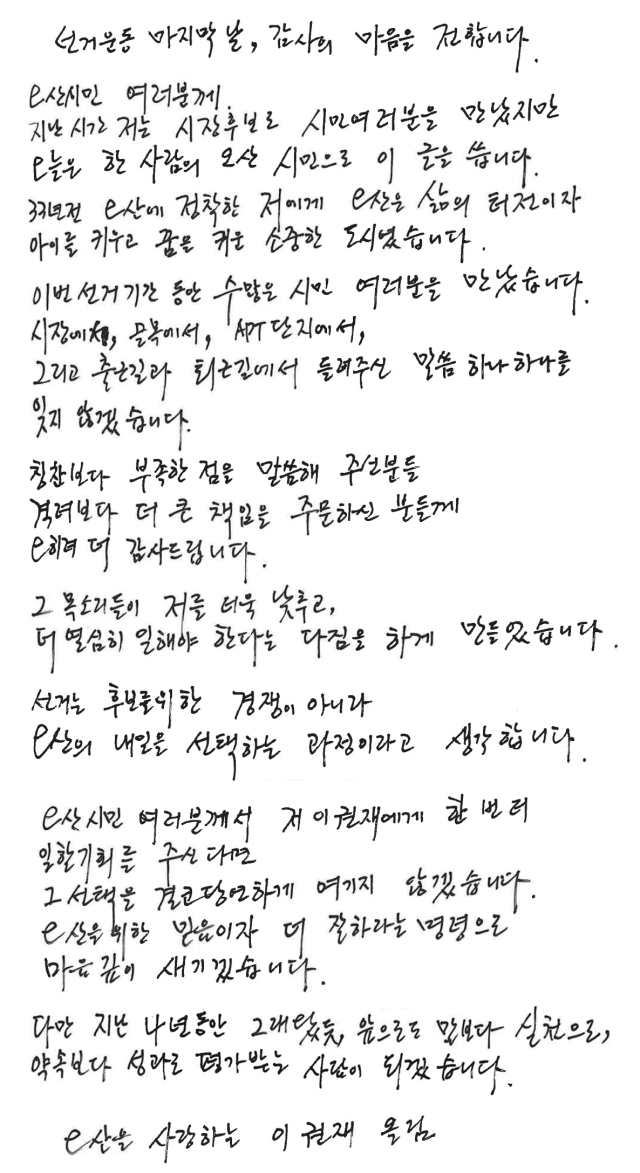 선거운동 마지막 날, 감사의 마음을 전합니다.
오산시민 여러분께.
지난 시간 저는 시장후보로 시민여러분을 만났지만
오늘은 한 사람의 오산 시민으로 이 글을 씁니다.
33년전 오산에 정착한 저에게 오산은 삶의 터전이자
아이를 키우고 꿈을 키운 소중한 도시였습니다.
이번 선거기간 동안 수많은 시민 여러분을 만났습니다.
시장에서, 골목에서, APT 단지에서,
그리고 출근길과 퇴근길에서 들려주신 말씀 하나하나를
잊지 않겠습니다.
칭찬보다 부족한 점을 말씀해 주신분들
격려보다 더 큰 책임을 주문하신 분들께
오히려 더 감사드립니다.
그 목소리들이 저를 더욱 낮추고,
더 열심히 일해야 한다는 다짐을 하게 만들었습니다.
선거는 후보를위한 경쟁이 아니라
오산의 내일을 선택하는 과정이라고 생각합니다.
오산시민 여러분께서 저 이권재에게 한 번 더
일할기회를 주신다면
그 선택을 결코당연하게 여기지 않겠습니다.
오산을 위한 믿음이자 더 잘하라는 명령으로
마음 깊이 새기겠습니다.
다만 지난 4년동안 그래왔듯, 앞으로도 말보다 실천으로,
약속보다 성과로 평가받는 사람이 되겠습니다.
오산을 사랑하는 이권재 올림